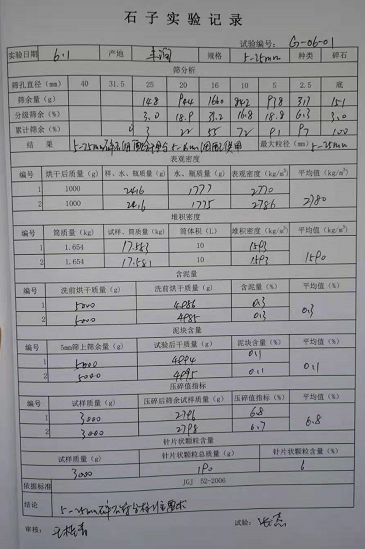 石子实验记录
试验编号：G-06-01
实验日期 6.1 产地 丰润 规格 5-25mm 种类 碎石
筛分析
筛孔直径（mm） 40 31.5 25 20 16 10 5 2.5 底
筛余量（g） 148 944 1660 842 938 313 151
分级筛余（%） 3.0 18.9 33.2 16.8 18.8 6.3 3.0
累计筛余（%） 0 3 22 55 72 91 97 100
结果 最大粒径（mm） 5-25mm
表观密度
编号 烘干后质量（g） 样、水、瓶质量（g） 水、瓶质量（g） 表观密度（kg/m³） 平均值（kg/m³）
1 1000 2416 1777 2770
2 1000 2416 1775 2786 2780
堆积密度
编号 筒质量（kg） 试样、筒质量（kg） 筒体积（L） 堆积密度（kg/m³） 平均值（kg/m³）
1 1.654 17.583 10 1593
2 1.654 17.581 10 1593 1590
含泥量
编号 洗前烘干质量（g） 洗前烘干质量（g） 含泥量（%） 平均值（%）
1 5000 4986 0.3
2 5000 4985 0.3 0.3
泥块含量
编号 5mm筛上筛余量（g） 试验后干质量（g） 泥块含量（%） 平均值（%）
1 5000 4994 0.1
2 5000 4995 0.1 0.1
压碎值指标
编号 试样质量（g） 压碎后筛余试样质量（g） 压碎值指标（%） 平均值（%）
1 3000 2796 6.8
2 3000 2798 6.7 6.8
针片状颗粒含量
试样质量（g） 针片状颗粒总质量（g） 针片状颗粒含量（%）
3000 190 6
依据标准 JGJ 52-2006
结论 5-25mm碎石符合标准要求
审核： 试验：